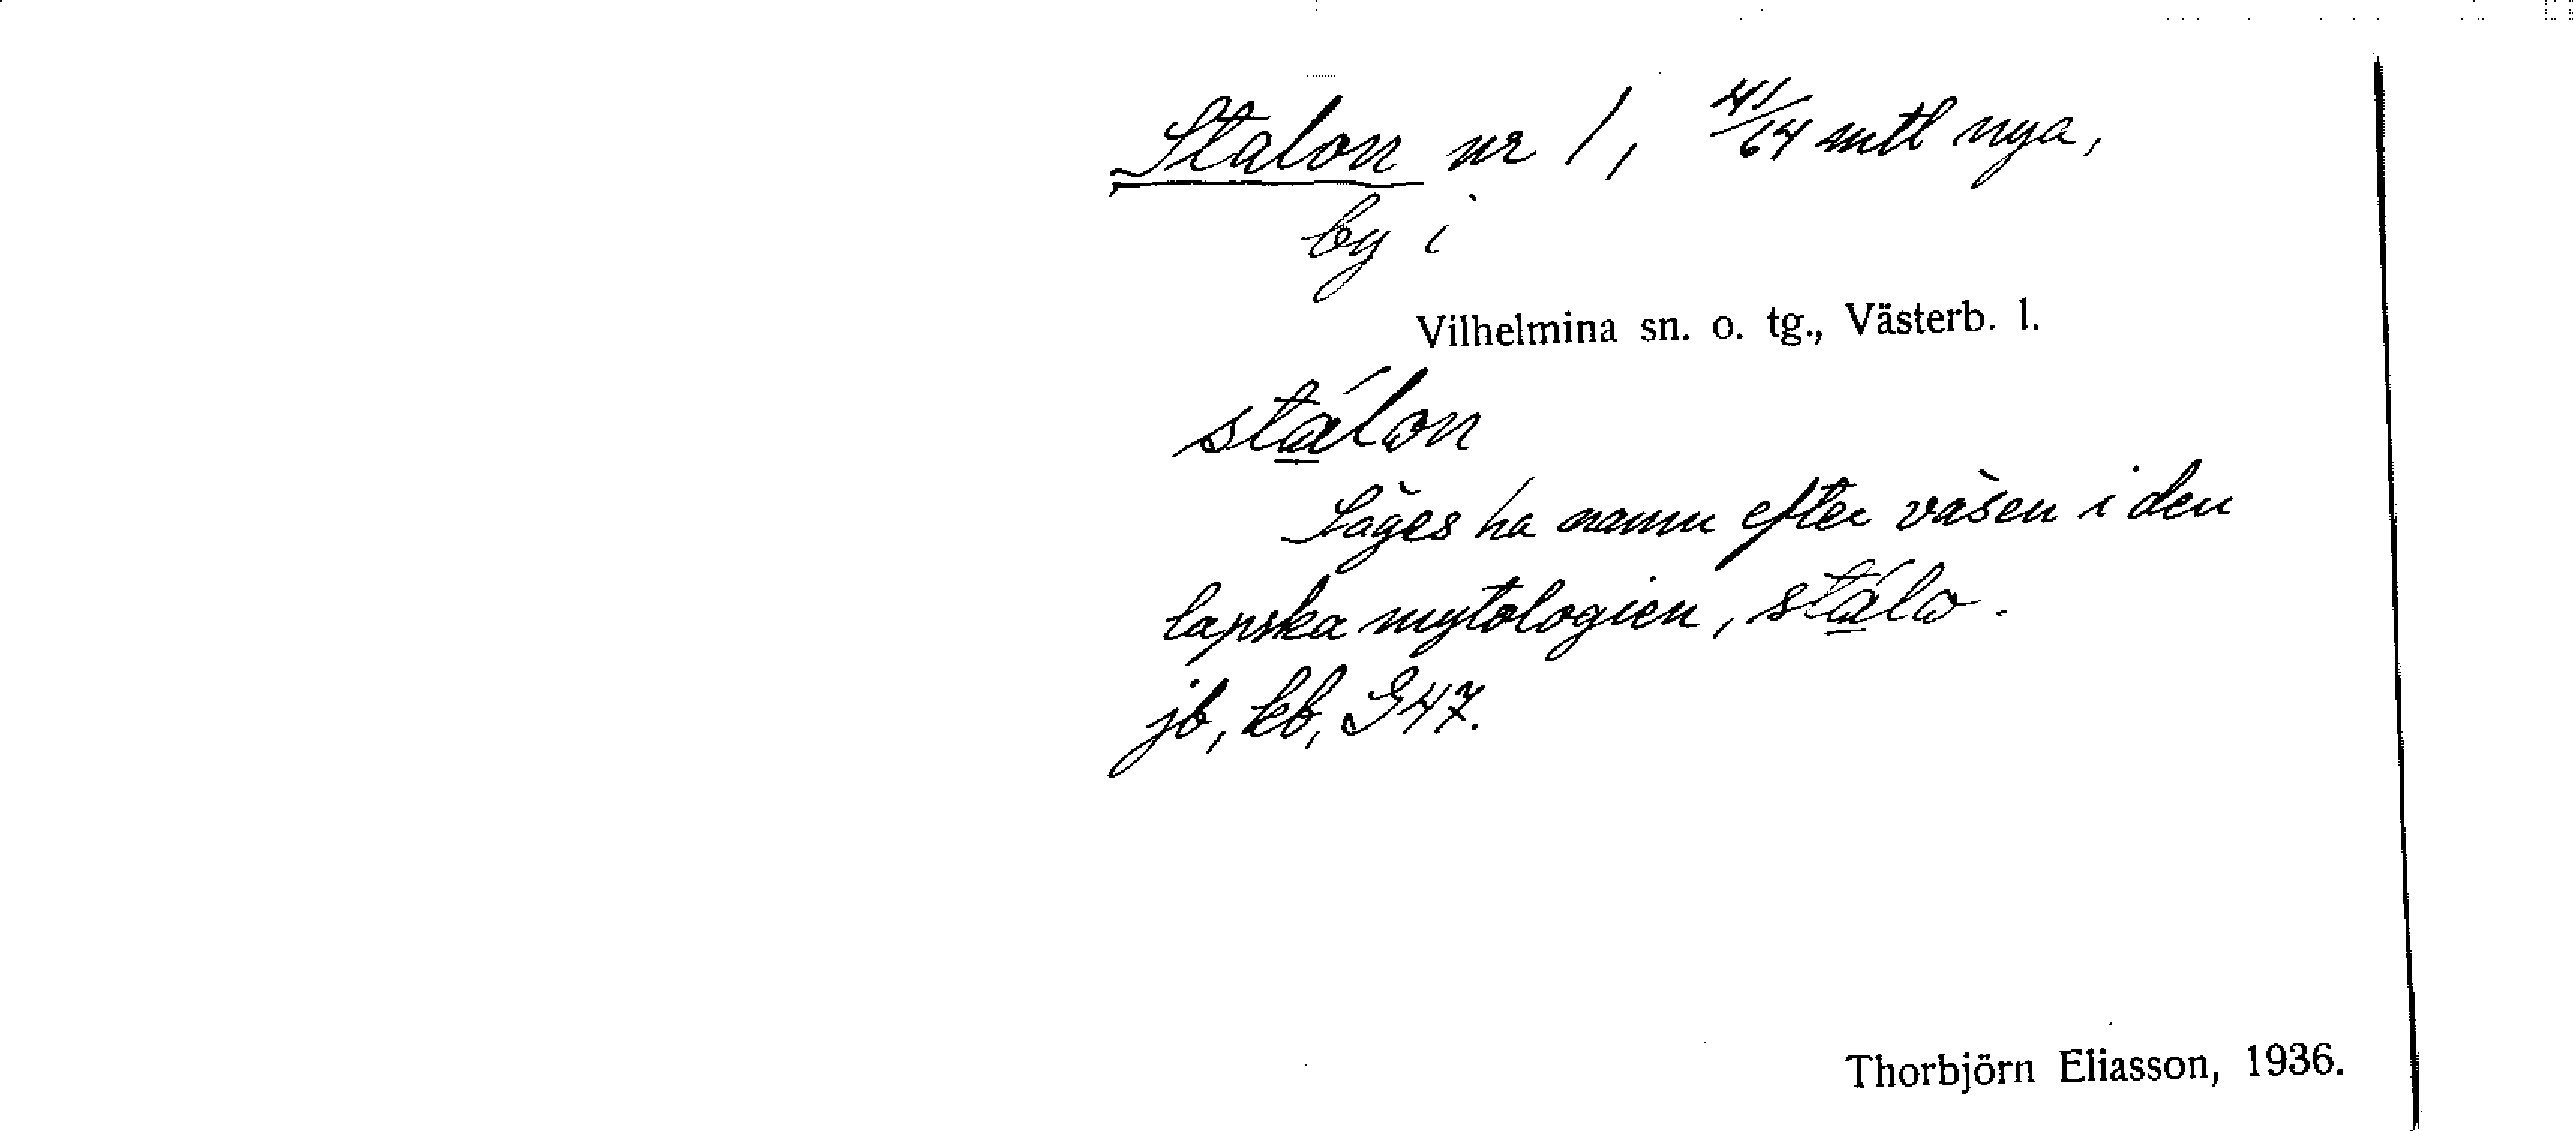 Stalon nr 1, 41/64 mtl nya,
by i
Vilhelmina sn. o. tg., Västerb. l.
stálon
Säges ha namn efter väsen i den
lapska mytologien, stálo.
jb, kb, G47.
Thorbjörn Eliasson, 1936.